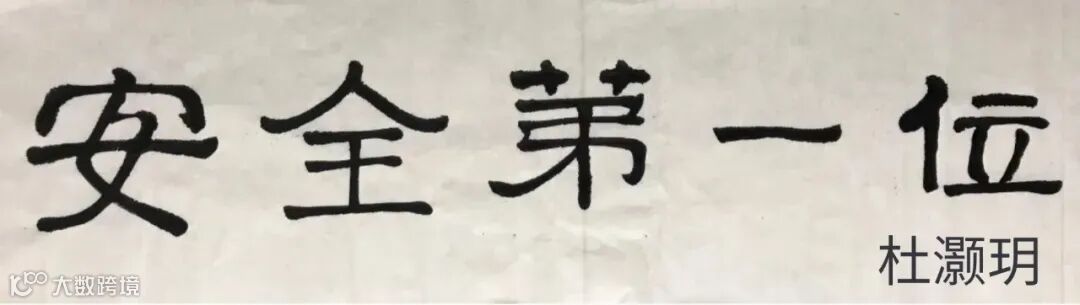 安全第一位
杜灏玥
大数跨境